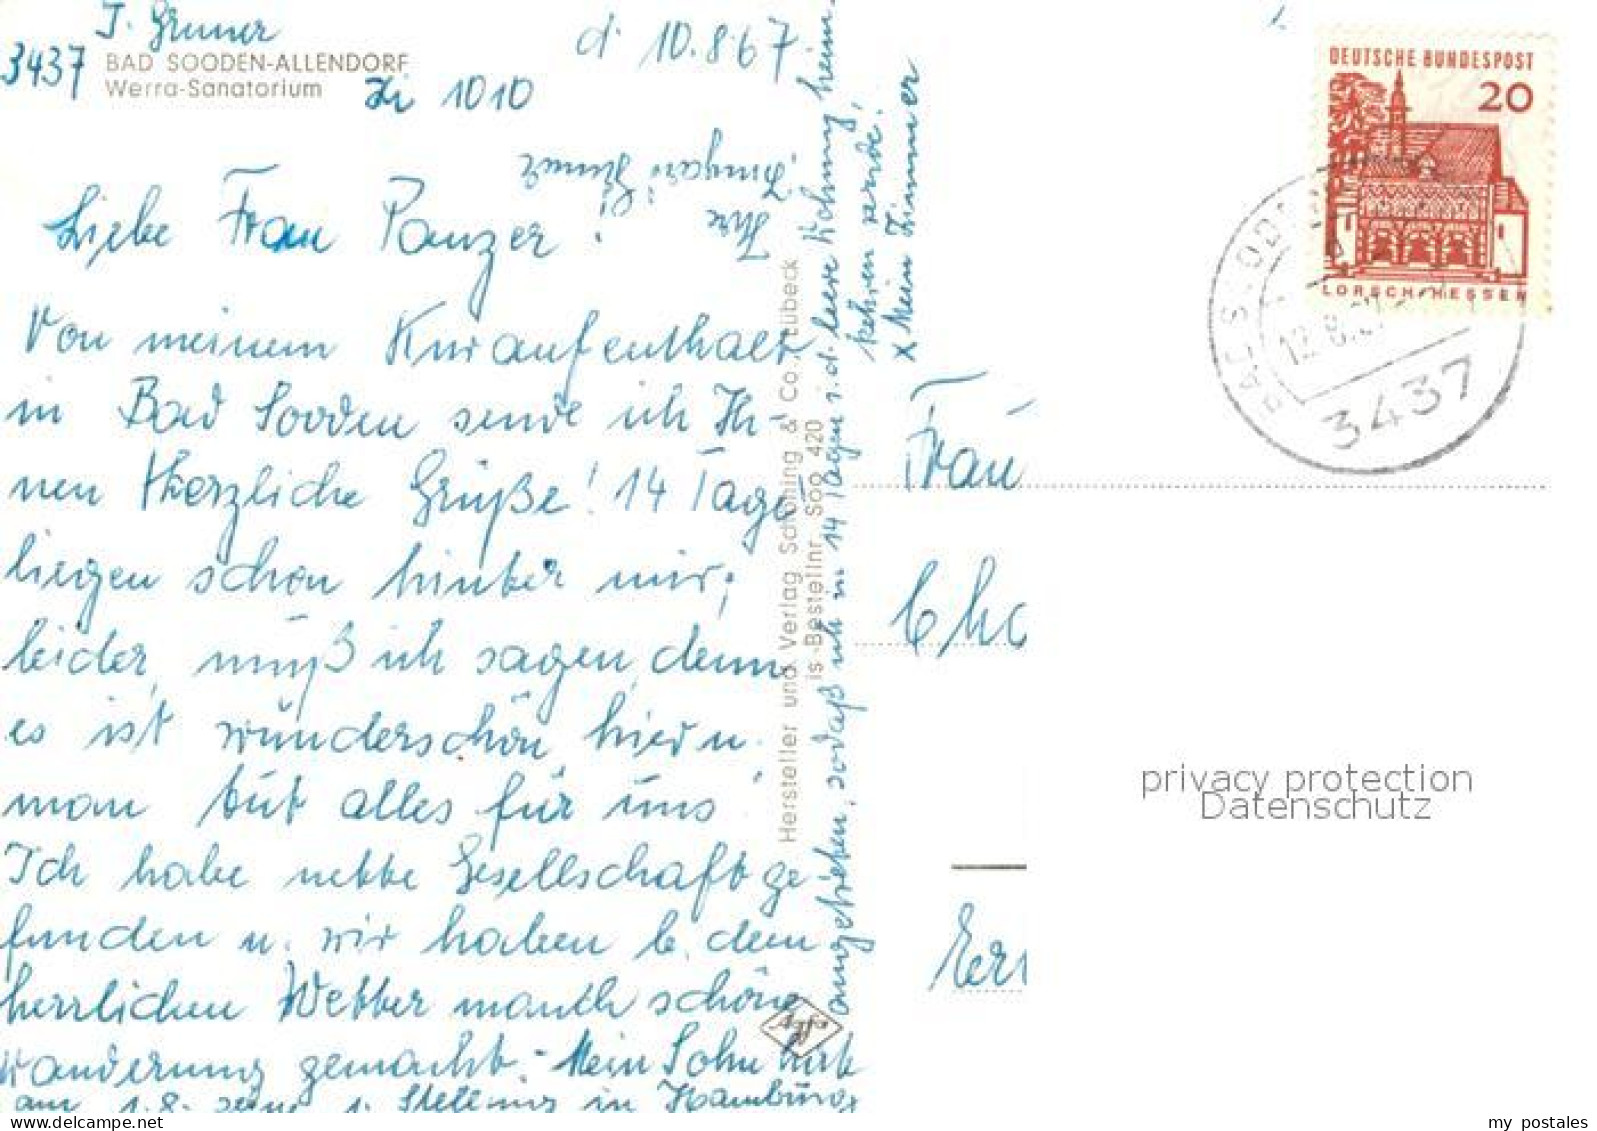 J. Gruner
3437 BAD SOODEN-ALLENDORF
Werra-Sanatorium
Zi 1010
d. 10.8.67
Liebe Frau Panzer!
Von meinem Kuraufenthalt
in Bad Sooden sende ich Ih-
nen herzliche Grüße! 14 Tage
liegen schon hinter mir;
leider, muß ich sagen, denn
es ist wunderschön hier u.
man tut alles für uns!
Ich habe nette Gesellschaft ge-
funden u. wir haben b. dem
herrlichen Wetter manch schöne
Wanderung gemacht. - Mein Sohn hat
am 1.8. seine 1. Stellung in Hamburg
angetreten, sodaß ich in 14 Tagen i. d. leere Wohnung heim-
kehren werde!
x Mein Zimmer
Ihre
Irmgard Gruner
Hersteller und Verlag Schöning & Co., Lübeck
is-Bestellnr. Soo 420
DEUTSCHE BUNDESPOST
20
LORSCH/HESSEN
BAD SOODEN
12.8.67
3437
Frau
Cha
privacy protection
Datenschutz
delcampe.net
my_postales